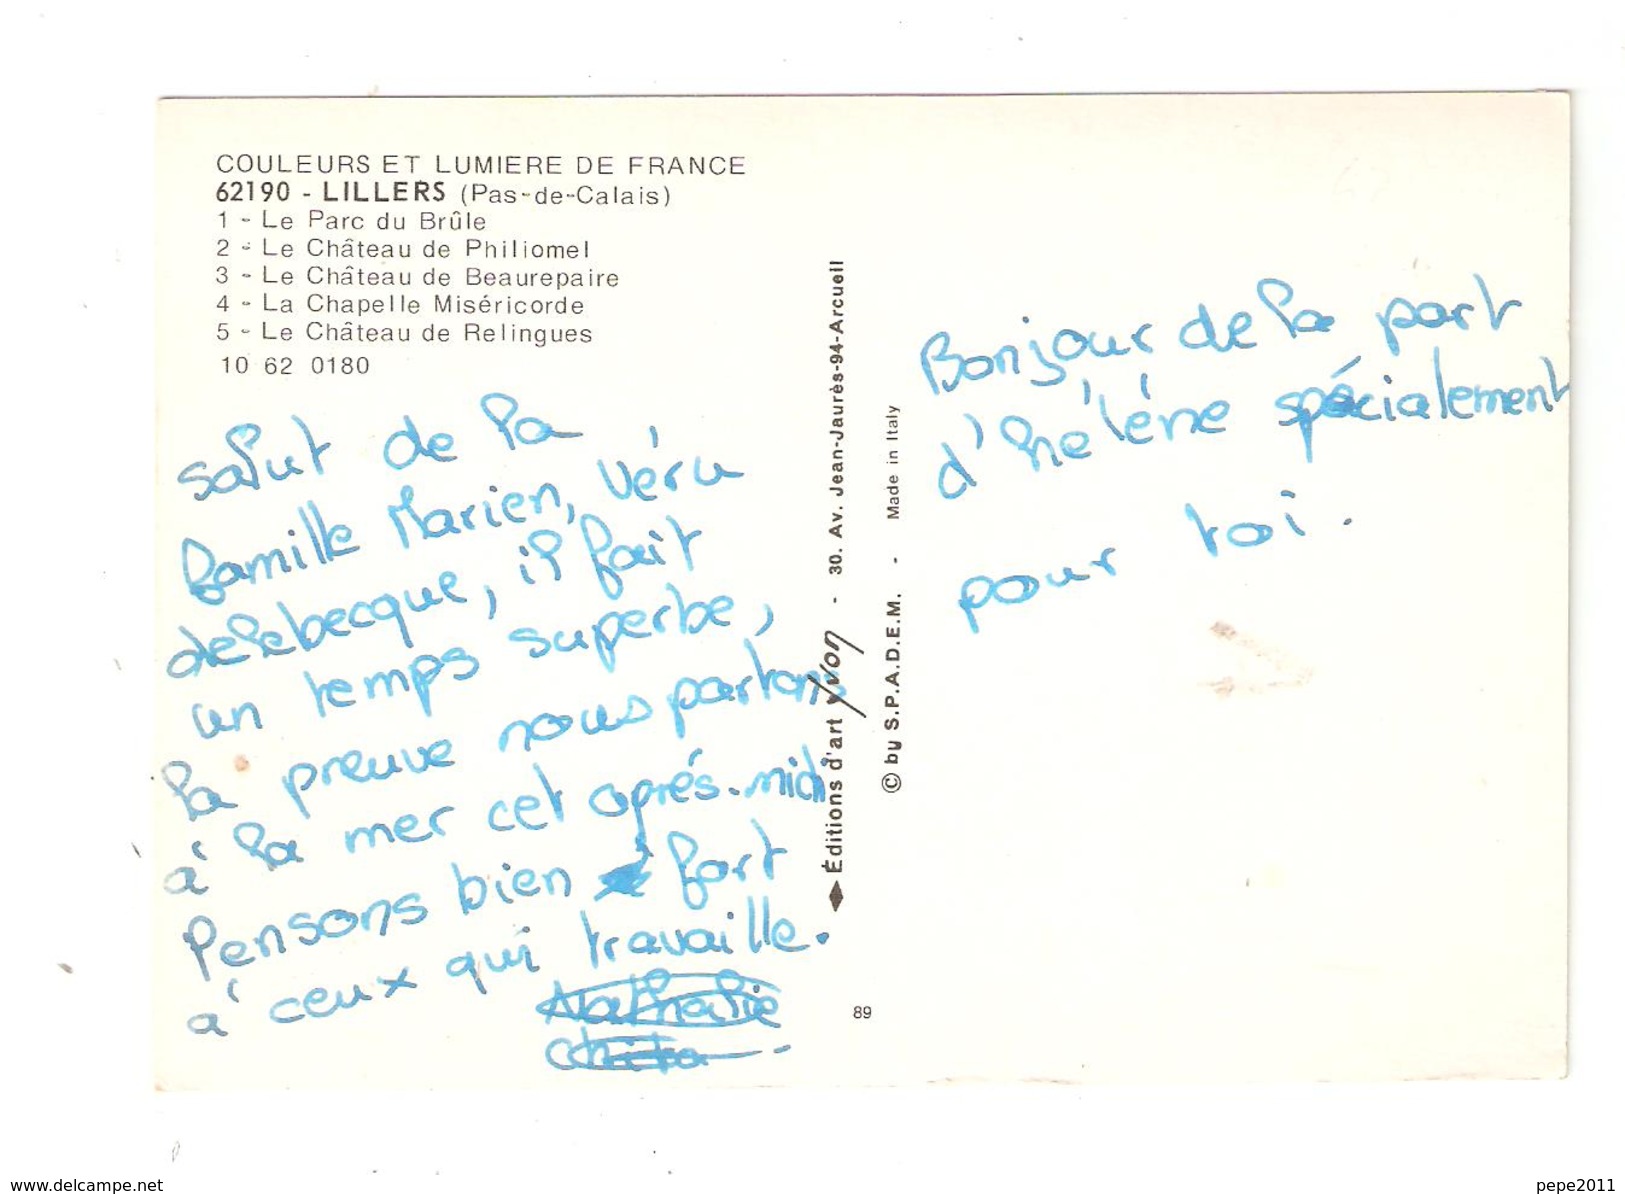 COULEURS ET LUMIERE DE FRANCE
62190 - LILLERS (Pas-de-Calais)
1 - Le Parc du Brûle
2 - Le Château de Philiomel
3 - Le Château de Beaurepaire
4 - La Chapelle Miséricorde
5 - Le Château de Relingues
10 62 0180
salut de la
famille Marien, Véru
delebecque, il fait
un temps superbe,
la preuve nous partons
à la mer cet aprés-midi
Pensons bien fort
à ceux qui travaille.
Nathalie
Éditions d'art Yvon - 30. Av. Jean-Jaurès-94-Arcueil
© by S.P.A.D.E.M. - Made in Italy
89
Bonjour de la part
d'hélène spécialement
pour toi.
www.delcampe.net
pepe2011